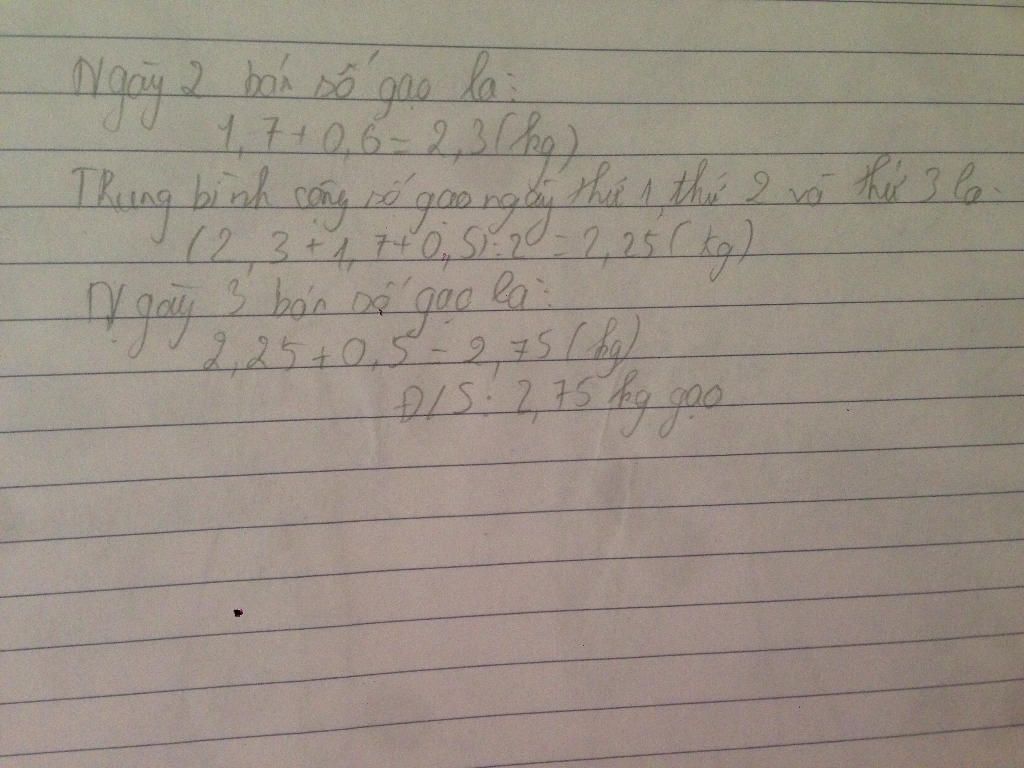 Ngày 2 bán số gạo là:
1,7 + 0,6 = 2,3 (kg)
Trung bình cộng số gạo ngày thứ 1, thứ 2 và thứ 3 là:
(2,3 + 1,7 + 0,5) : 2 = 2,25 (kg)
Ngày 3 bán số gạo là:
2,25 + 0,5 = 2,75 (kg)
Đ/S: 2,75 kg gạo